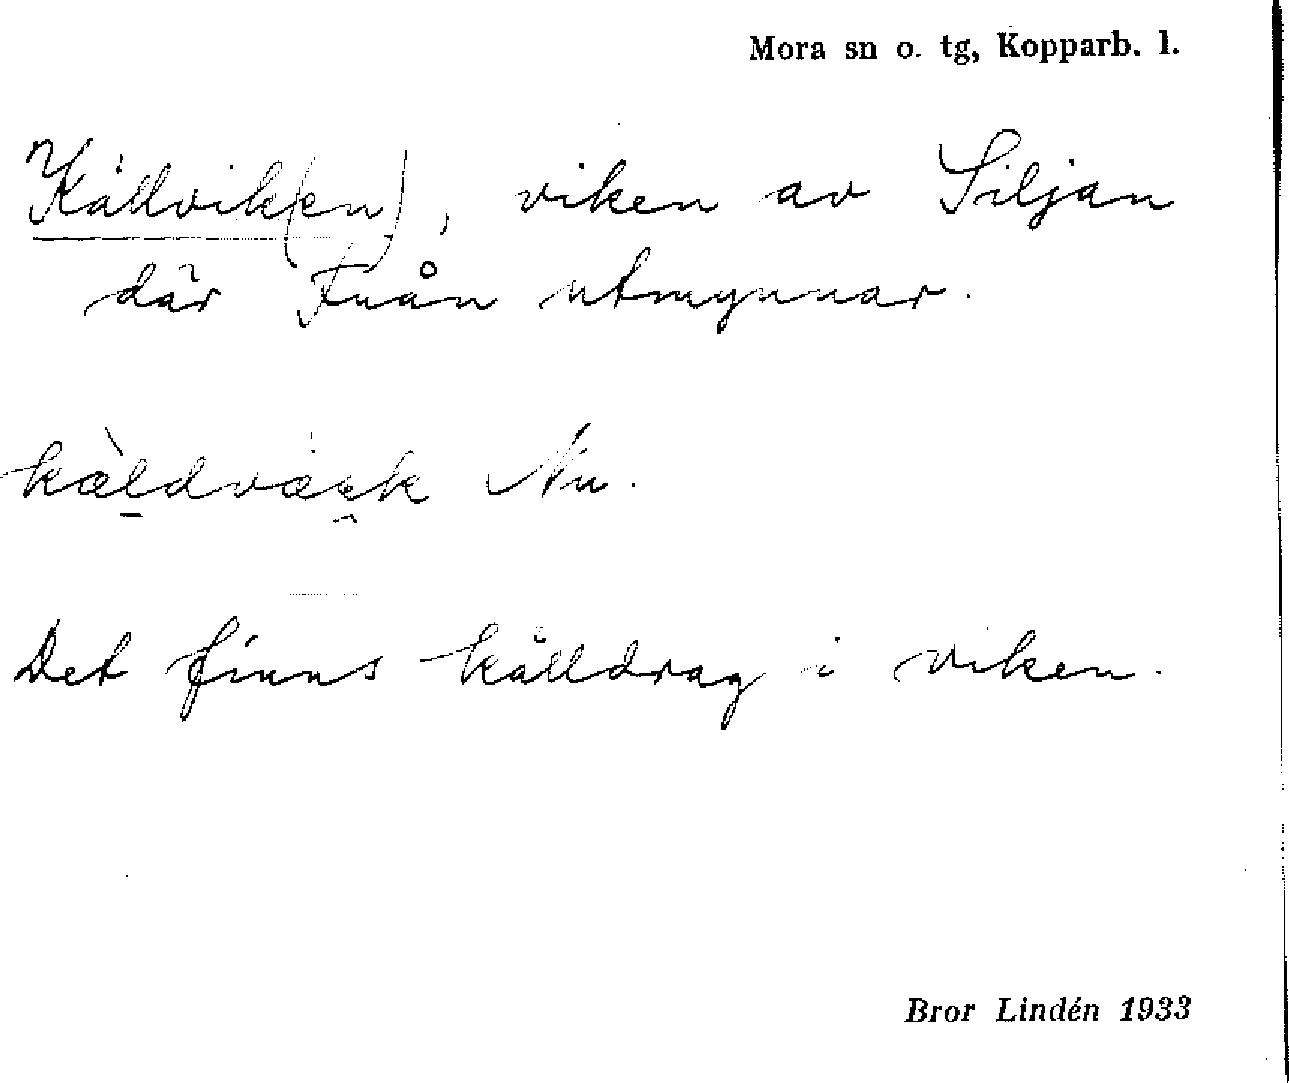 Mora sn o. tg, Kopparb. l.
Källvik(en), viken av Siljan
där Fuån utmynnar.
Nu.
Det finns källdrag i viken.
Bror Lindén 1933